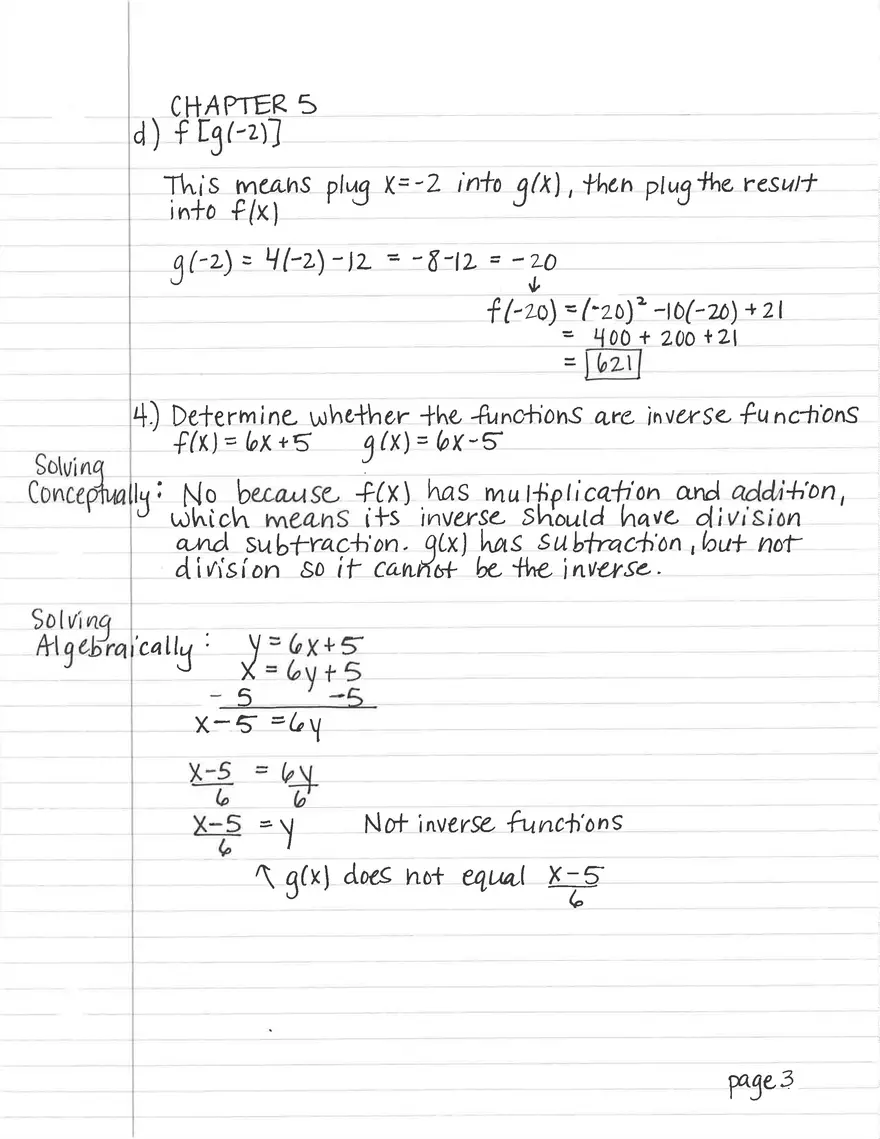 CHAPTER 5
d) f[g(-2)]
This means plug x=-2 into g(x), then plug the result
into f(x)
g(-2) = 4(-2) -12 = -8-12 = -20
↓
f(-20) = (-20)² -10(-20) + 21
= 400 + 200 + 21
= 621
4.) Determine whether the functions are inverse functions
f(x) = 6x+5 g(x) = 6x-5
Solving
Conceptually: No because f(x) has multiplication and addition,
which means its inverse should have division
and subtraction. g(x) has subtraction, but not
division so it cannot be the inverse.
Solving
Algebraically: y = 6x+5
x = 6y+5
- 5 -5
x-5 = 6y
x-5 = 6y
6 6
x-5 = y Not inverse functions
6
↑ g(x) does not equal x-5
6
page 3